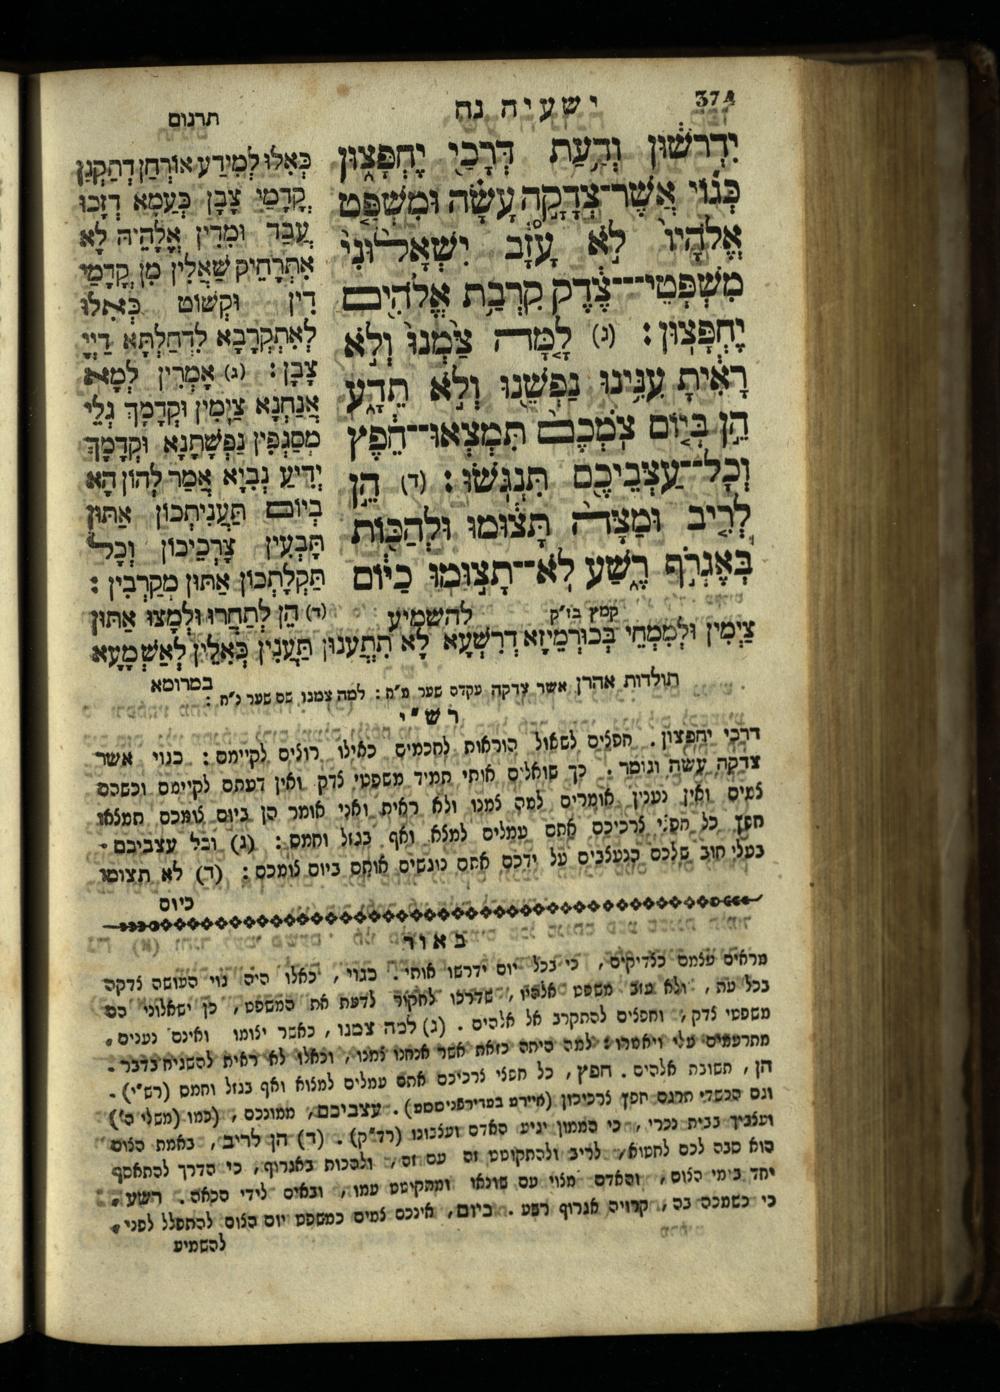 374
ישעיה נח
תרגום
יִדְרֹשׁוּן וְדַעַת דְּרָכַי יֶחְפָּצוּן
כְּגוֹי אֲשֶׁר־צְדָקָה עָשָׂה וּמִשְׁפַּט
אֱלֹהָיו לֹא עָזָב יִשְׁאָלוּנִי
מִשְׁפְּטֵי־־־צֶדֶק קִרְבַת אֱלֹהִים
יֶחְפָּצוּן : (ג) לָמָּה צַּמְנוּ וְלֹא
רָאִיתָ עִנִּינוּ נַפְשֵׁנוּ וְלֹא תֵדָע
הֵן בְּיוֹם צֹמְכֶם תִּמְצְאוּ־־חֵפֶץ
וְכָל־־עַצְּבֵיכֶם תִּנְגֹּשׂוּ : (ד) הֵן
לְרִיב וּמַצָּה תָּצוּמוּ וּלְהַכּוֹת
בְּאֶגְרֹף רֶשַׁע לֹא־־תָצוּמוּ כַיּוֹם
קמץ בז"ק
להשמיע
כְּאִלּוּ לְמִידַע אוֹרְחָן דְתַקְנָן
קֳדָמַי צָבָן כְּעַמָא דְזָכוּ
עֲבַד וּמִדִין אֱלָהֵיהּ לָא
אִתְרָחֵיק שַׁאֲלִין מִן קֳדָמַי
דִין וּקְשׁוֹט כְּאִלּוּ
לְאִתְקְרָבָא לְדַחַלְתָּא דַיְיָ
צָבָן : (ג) אָמְרִין לְמָא
אֲנַחְנָא צַיְמִין וְקָדָמָךְ גְלֵי
מְסַגְפִין נַפְשָׁתָנָא וְקָדָמָךְ
יְדִיעַ נְבִיָא אֲמַר לְהוֹן הָא
בְיוֹם תַּעֲנִיתְכוֹן אַתּוּן
תָּבְעִין צָרְכֵיכוֹן וְכָל
תַּקְלָתְכוֹן אַתּוּן מְקָרְבִין :
(ד) הֵן לְתַחֲרוּ וּלְמַצוּ אַתּוּן
צַיְמִין וּלְמִמְחֵי בְּכוּרְמֵיזָא דְרִשְׁעָא לָא תִתְעַנוּן תַּעֲנִין כְּאִלֵין לְאַשְׁמָעָא
במרומא
תולדות אהרן אשר צדקה עקדה שער מ"ח : למה צמנו שם שער ל"ח :
רש"י
דרכי יחפצון . חפצים לשאול הוראות לחכמים כאילו רוצים לקיימם : כגוי אשר
צדקה עשה וגומר . כך שואלים אותי תמיד משפטי צדק ואין דעתם לקיימם וכשהם
צמים ואין נענין אומרים למה צמנו ולא ראית ואני אומר הן ביום צומכם תמצאו
חפץ כל חפצי צרכיכם אתם עמלים למצא ואף בגזל וחמס : (ג) וכל עצביכם .
בעלי חוב שלכם הנעצבים על ידכם אתם נוגשים אותם ביום צומכם : (ד) לא תצומו
כיום
באור
מראים עצמם כצדיקים , כי בכל יום ידרשו אותי . כגוי , כאלו היה גוי העושה צדקה
בכל עת , ולא עזב משפט אלהיו , שדרכו לחקור לדעת את המשפט , כן ישאלוני הם
משפטי צדק , וחפצים להתקרב אל אלהים . (ג) למה צמנו , כאשר יצומו ואינם נענים ,
מתרעמים עלי ויאמרו : למה היתה כזאת אשר אנחנו צמנו , וכאלו לא ראית להשגיח בדבר .
הן , תשובת אלהים . חפץ , כל חפצי צרכיכם אתם עמלים למצוא ואף בגזל וחמס (רש"י) .
וגם הכשדי תרגם חפץ צרכיכון . עצביכם , ממונכם , כמו (משלי ה')
ועצביך בבית נכרי , כי הממון יגיע האדם ועצבונו (רד"ק) . (ד) הן לריב , באמת הצום
הוא סבה לכם לחטוא , לריב ולהתקוטט זה עם זה , ולהכות באגרוף , כי הדרך להתאסף
יחד בימי הצום , והאדם מצוי עם שונאו ומתקוטט עמו , ובאים לידי הכאה . רשע ,
כי כשמכה בה , קרויה אגרוף רשע . כיום , אינכם צמים כמשפט יום הצום להתפלל לפני ,
להשמיע